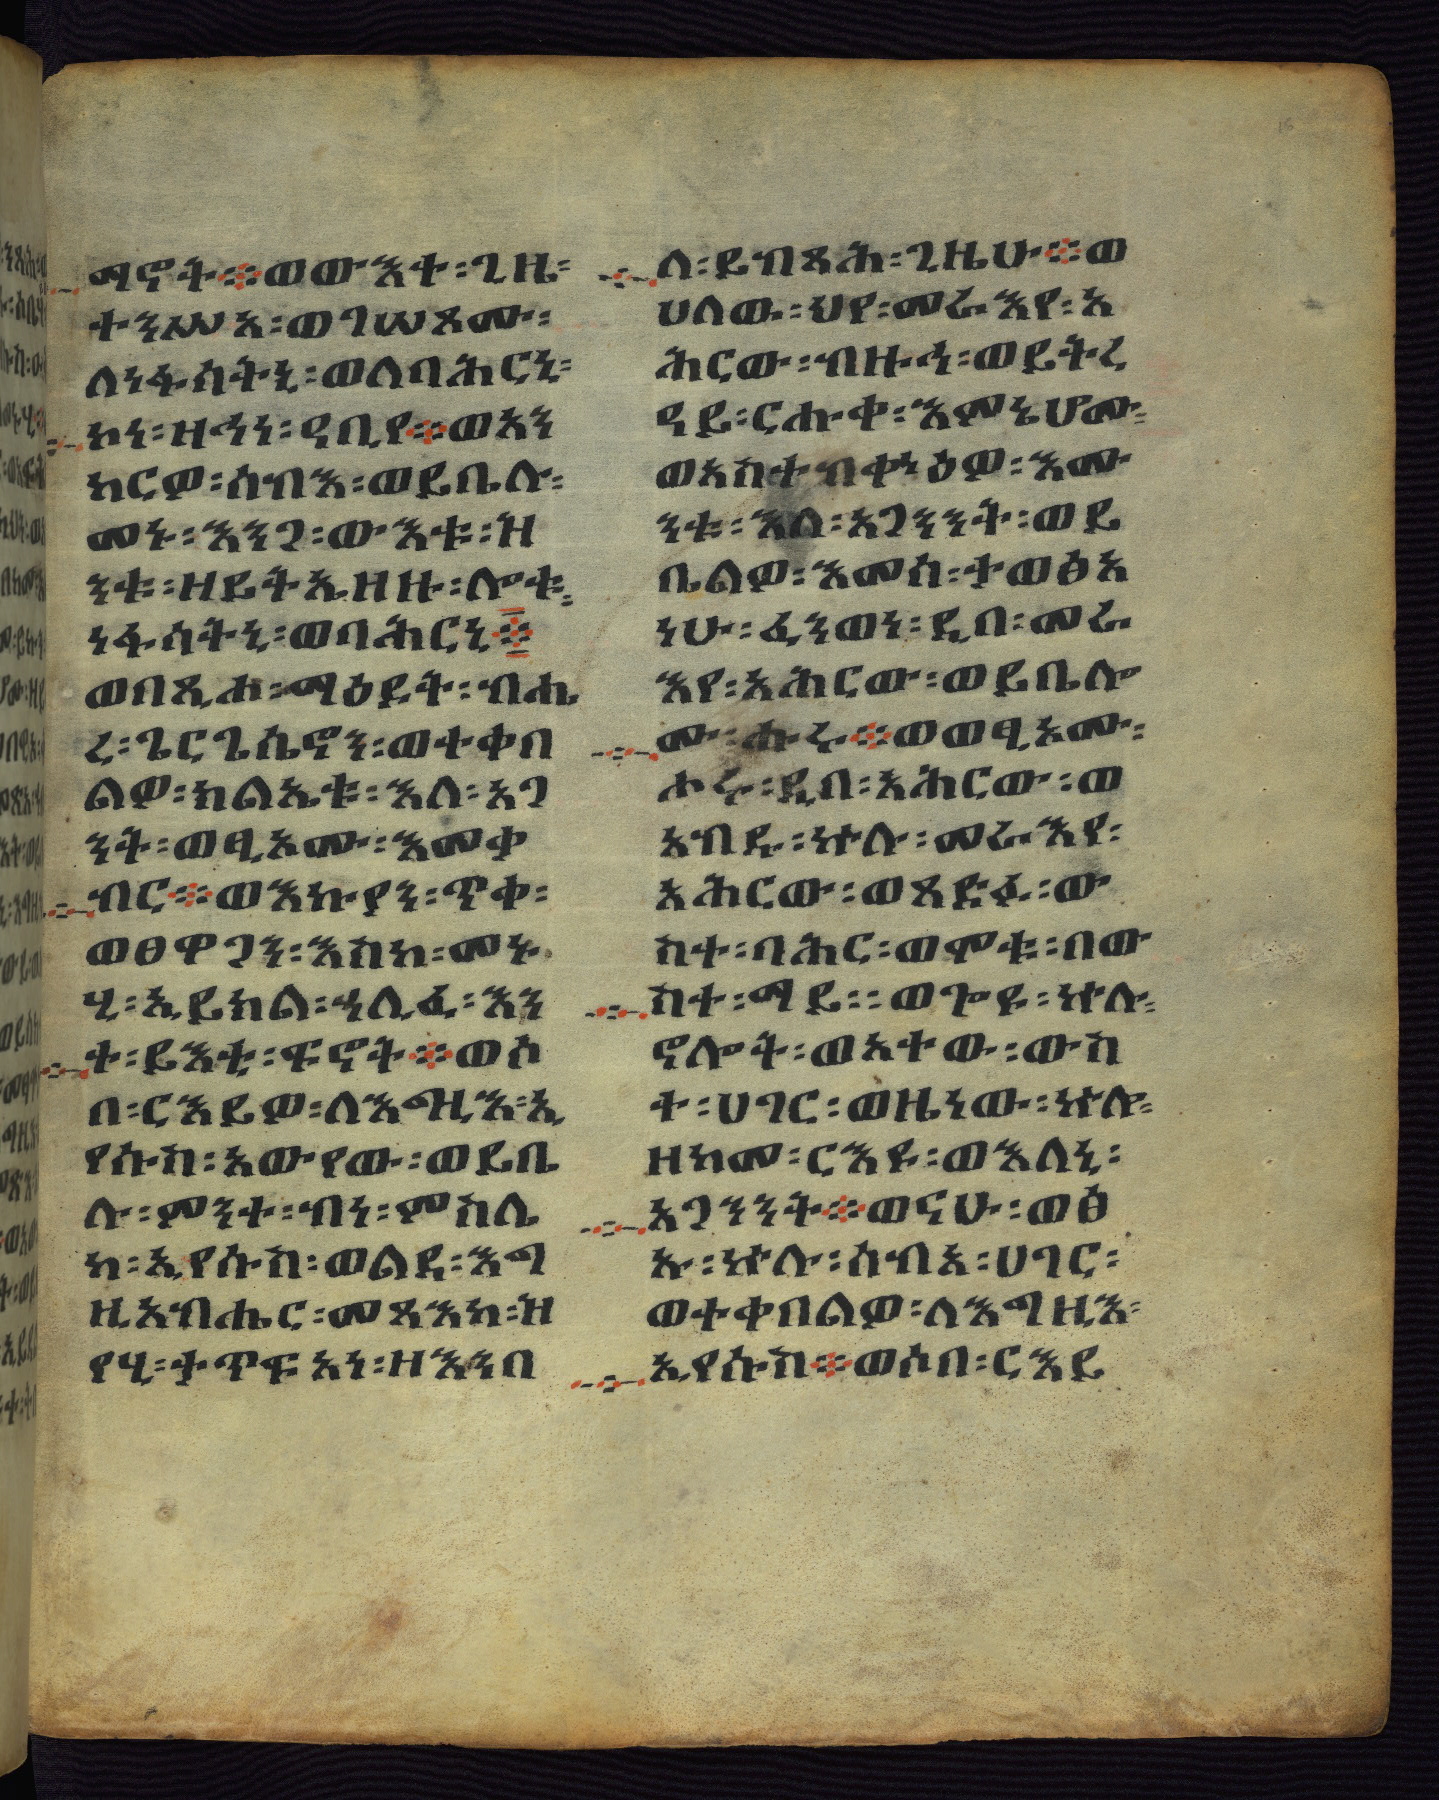 ማኖት፨ወውእተ፡ጊዜ፡
ተንሥአ፡ወገሠጾሙ፡
ለነፋሳትኒ፡ወለባሕርኒ፡
ኮነ፡ዘኅነ፡ዓቢየ፨ወአን
ከርዎ፡ሰብእ፡ወይቤሉ፡
መኑ፡እንጋ፡ውእቱ፡ዝ
ንቱ፡ዘይትኤዘዙ፡ሎቱ፡
ነፋሳትኒ፡ወባሕርኒ፨
ወበጺሖ፡ማዕዶት፡ብሔ
ረ፡ጌርጌሴኖን፡ወተቀበ
ልዎ፡ክልኤቱ፡እለ፡አጋ
ንንት፡ወፂኦሙ፡እመቃ
ብር፨ወእኩያን፡ጥቀ፡
ወፀዋጋን፡እስከ፡መኑ
ሂ፡ኢይክል፡ኃሊፈ፡እን
ተ፡ይእቲ፡ፍኖት፨ወሶ
በ፡ርእይዎ፡ለእግዚእ፡ኢ
የሱስ፡አውየው፡ወይቤ
ሉ፡ምንተ፡ብነ፡ምስሌ
ከ፡ኢየሱስ፡ወልደ፡እግ
ዚአብሔር፡መጻእከ፡ዝ
የሂ፡ታጥፍአነ፡ዘእንበ
ለ፡ይብጻሕ፡ጊዜሁ፨ወ
ሀለው፡ህየ፡መራእየ፡አ
ሕርው፡ብዙኅ፡ወይትረ
ዓይ፡ርሑቀ፡እምኔሆሙ፡
ወአስተብቀንዕዎ፡እሙ
ንቱ፡እለ፡አጋንንት፡ወይ
ቤልዎ፡እመሰ፡ተወፅአ
ነሁ፡ፈንወነ፡ዲበ፡መራ
እየ፡አሕርው፡ወይቤሎ
ሙ፡ሑሩ፨ወወፂኦሙ፡
ሖሩ፡ዲበ፡አሕርው፡ወ
አብዱ፡ኵሉ፡መራእየ፡
አሕርው፡ወጸድፉ፡ው
ስተ፡ባሕር፡ወሞቱ፡በው
ስተ፡ማይ፡፡ወጐዩ፡ኵሉ፡
ኖሎት፡ወአተው፡ውስ
ተ፡ሀገር፡ወዜነው፡ኵሎ፡
ዘከመ፡ርእዩ፡ወእለኒ፡
አጋንንት፨ወናሁ፡ወፅ
ኡ፡ኵሉ፡ሰብአ፡ሀገር፡
ወተቀበልዎ፡ለእግዚእ፡
ኢየሱስ፨ወሶበ፡ርእይ